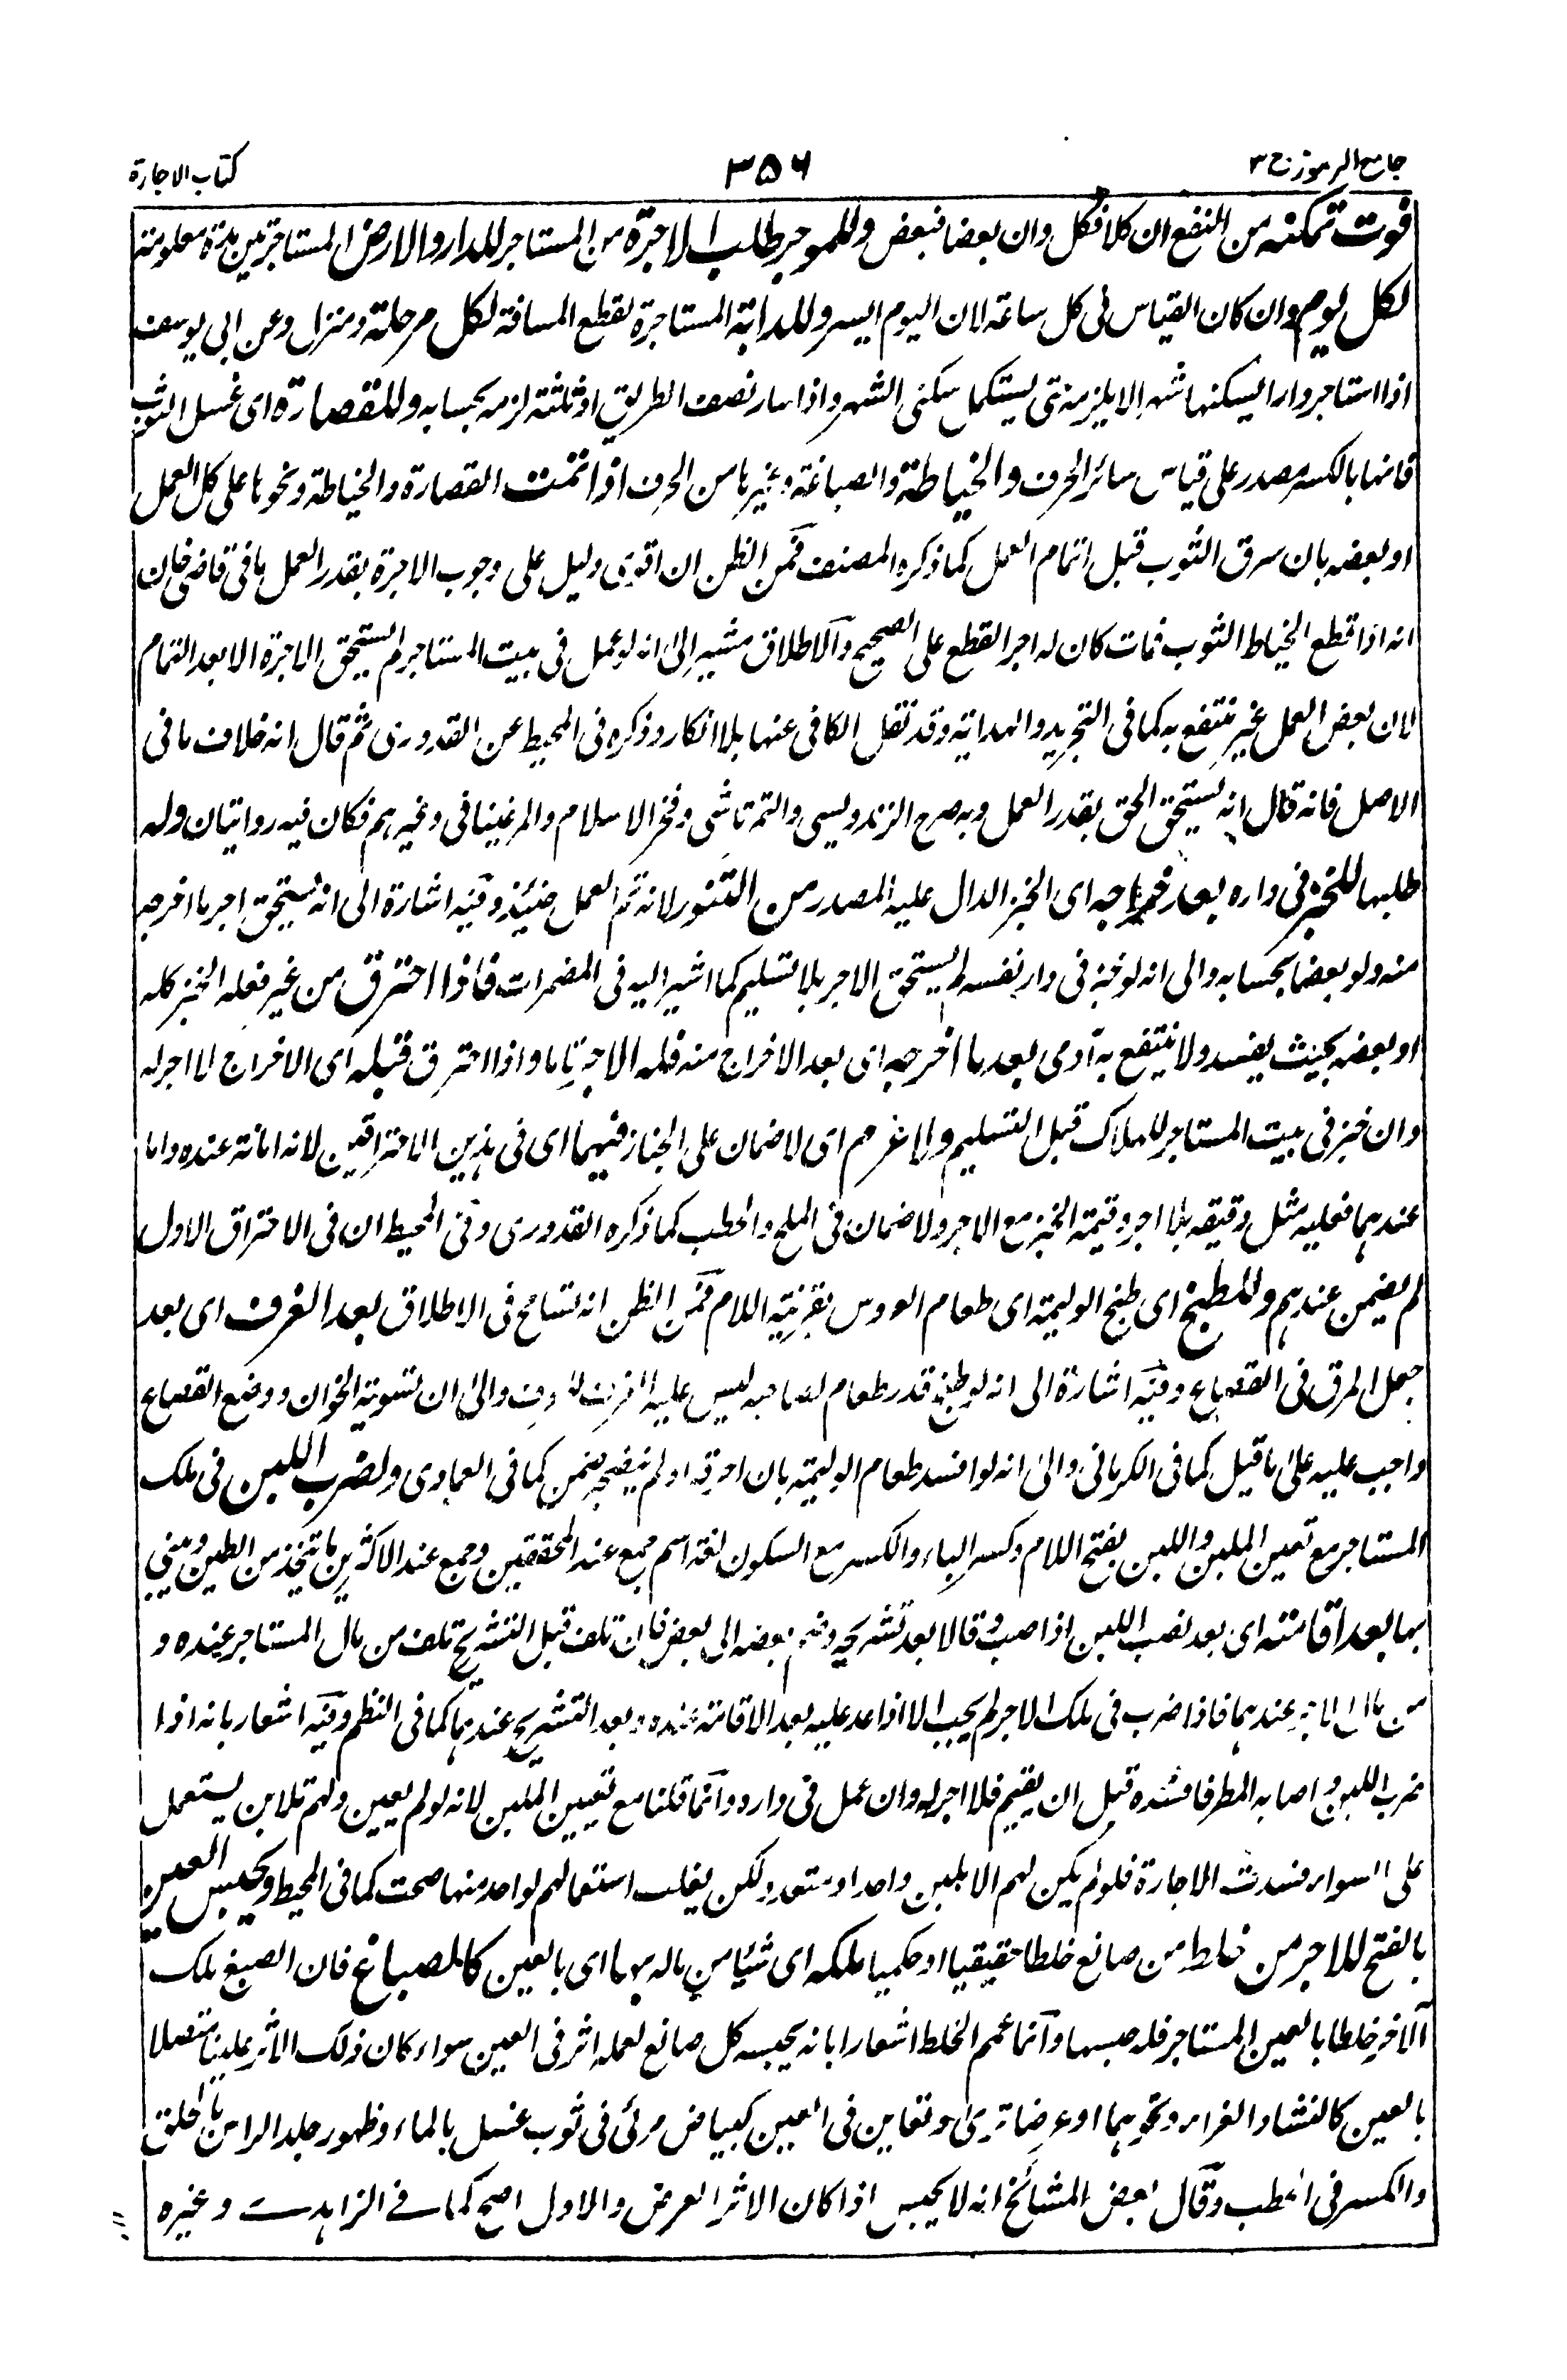 جامع الرموز ج ٣
٣٥٦
كتاب الاجارة
فوت تمكنه من النفع ان كلا فكل وان بعضا فبعض وللموجر طلب الاجرة من المستاجر للدار والارض المستاجرتين بمدة معلومة
لكل يوم وان كان القياس فى كل ساعة لان اليوم ايسر وللدابة المستاجرة لقطع المسافة لكل مرحلة ومنزل وعن ابى يوسف
اذا استاجر دارا ليسكنها شهرا لا يلزمه حتى يستكمل سكنى الشهر واذا سار نصف الطريق او ثلثه لزمه بحسابه وللقصارة اى غسل الثوب
فانها بالكسر مصدر على قياس سائر الحرف والخياطة والصباغة وغيرها من الحرف اذا تمت القصارة والخياطة ونحوها على كل العمل
او بعضه بان سرق الثوب قبل اتمام العمل كما ذكره المصنف فمن الظن ان اقوى دليل على وجوب الاجرة بقدر العمل ما فى قاضى خان
انه اذا قطع الخياط الثوب فمات كان له اجر القطع على الصحيح والاطلاق مشير الى انه لو عمل فى بيت المستاجر لم يستحق الاجرة الا بعد التمام
لان بعض العمل غير منتفع به كما فى التجريد والهداية وقد نقل الكافى عنها بلا انكار وذكره فى المحيط عن القدورى ثم قال انه خلاف ما فى
الاصل فانه قال انه يستحق الحق بقدر العمل وبه صرح الزندويسى والتمرتاشى وفخر الاسلام والمرغينانى وغيرهم فكان فيه روايتان وله
طلبها للخبز فى داره بعد اخراجه اى الخبز الدال عليه المصدر من التنور لانه تم العمل حينئذ وفيه اشارة الى انه يستحق اجر ما اخرجه
منه ولو بعضا بحسابه والى انه لو خبز فى دار نفسه لم يستحق الاجر بلا تسليم كما اشير اليه فى المضمرات فاذا احترق من غير فعله الخبز كله
او بعضه بحيث يفسد ولا ينتفع به آدمى بعد ما اخرجه اى بعد الاخراج منه فله الاجر تاما واذا احترق قبله اى الاخراج لا اجر له
وان خبز فى بيت المستاجر للهلاك قبل التسليم ولا غرم اى لا ضمان على الخباز فيهما اى فى هذين الاحتراقين لانه امانة عنده واما
عندهما فعليه مثل دقيقه بلا اجر وقيمة الخبز مع الاجر ولا ضمان فى الملح والحطب كما ذكره القدورى وفى المحيط ان فى الاحتراق الاول
لم يضمن عندهم وللطبخ اى طبخ الوليمة اى طعام العروس بقرينة اللام فمن الظن انه تسامح فى الاطلاق بعد الغرف اى بعد
جعل المرق فى القصاع وفيه اشارة الى انه لو طبخ قدر طعام لصاحبه ليس عليه الغرف للعرف والى ان تسوية الخوان ووضع القصاع
واجب عليه على ما قيل كما فى الكرمانى والى انه لو افسد طعام الوليمة بان احرقه او لم ينضجه ضمن كما فى العمادى ولضرب اللبن فى ملك
المستاجر مع تعيين الملبن واللبن بفتح اللام وكسر الباء والكسر مع السكون لغة اسم جمع عند المحققين وجمع عند الاكثرين ما يتخذ من الطين ويبنى
بها بعد اقامته اى بعد نصب اللبن اذا صب وقالا بعد تشريجه وضم بعضه الى بعض فان تلف قبل التشريج تلف من مال المستاجر عنده و
من مال عندهما فاذا ضرب فى ملك الاجر لم يجب الا اذا عد عليه بعد الاقامة عنده وبعد التشريج عندهما كما فى النظم وفيه اشعار بانه اذا
ضرب اللبن و اصابه المطر فافسده قبل ان يقيم فلا اجر له وان عمل فى داره وانما قلنا مع تعيين الملبن لانه لو لم يعين ولهم ملابن يستعمل
على السواء فسدت الاجارة فلو لم يكن لهم الا ملبن واحد او متعدد لكن يغلب استعمالهم لواحد منها صحت كما فى المحيط ويحبس العين
بالفتح للاجر من خلط من صانع خلطا حقيقيا او حكميا ملكه اى شيئا من ماله بها اى بالعين كالصباغ فان الصبغ ملك
الاخر خلطا بالعين المستاجر فله حبسها وانما عمم الخلط اشعارا بانه يحبسه كل صانع لعمله اثر فى العين سواء كان ذلك الاثر عينا متصلا
بالعين كالنشا والغراء ونحوهما او عرضا يرى وتعاين فى العين كبياض مرئى فى ثوب غسل بالماء وظهور جلد الراس بالحلق
والكسر فى الحطب وقال بعض المشائخ انه لا يحبس اذا كان الاثر العرض والاول اصح كما فى الزاهدى وغيره